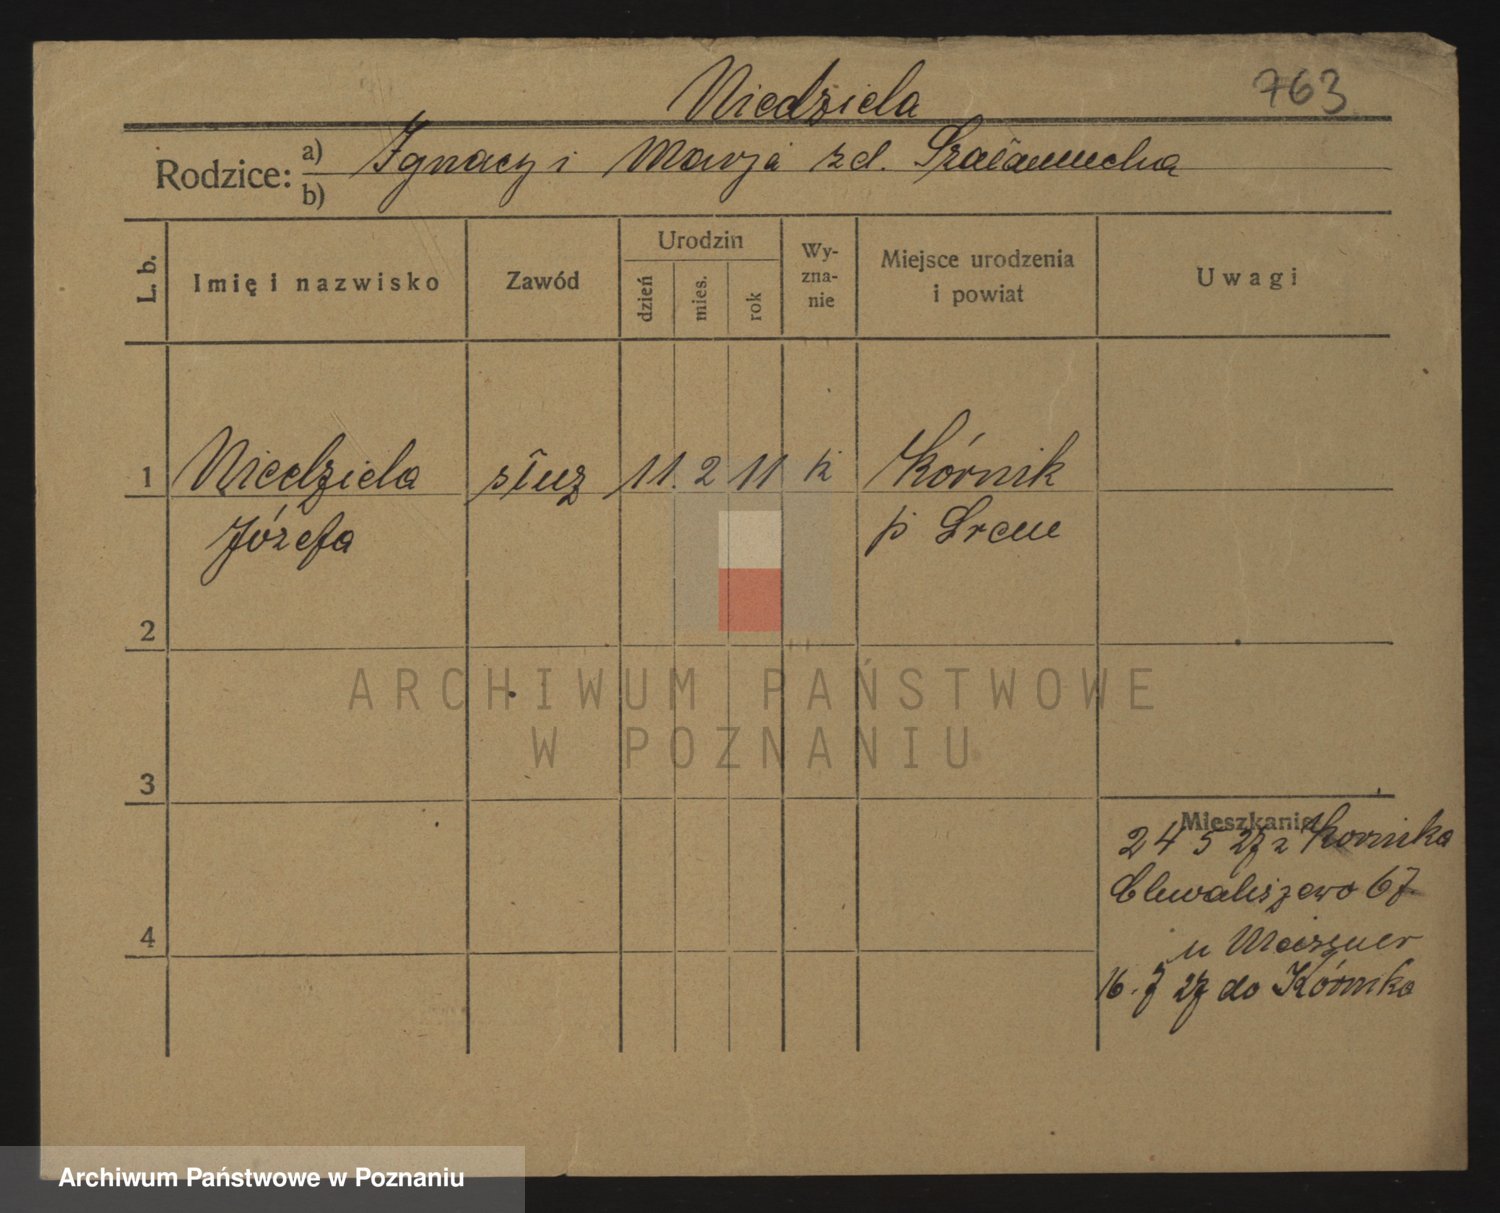 Niedziela
763
Rodzice: a) Ignacy i Marja zd. Szałamacha
b)
L. b.
Imię i nazwisko
Zawód
Urodzin
dzień
mies.
rok
Wy-
zna-
nie
Miejsce urodzenia
i powiat
Uwagi
1 Niedziela służ 11. 2 11 k Kórnik
Józefa p Srem
2
ARCHIWUM PAŃSTWOWE
W POZNANIU
3
Mieszkanie
24 5 27 z Kornika
Chwaliszewo 67
4
u
16. 7 27 do Kórnika
Archiwum Państwowe w Poznaniu